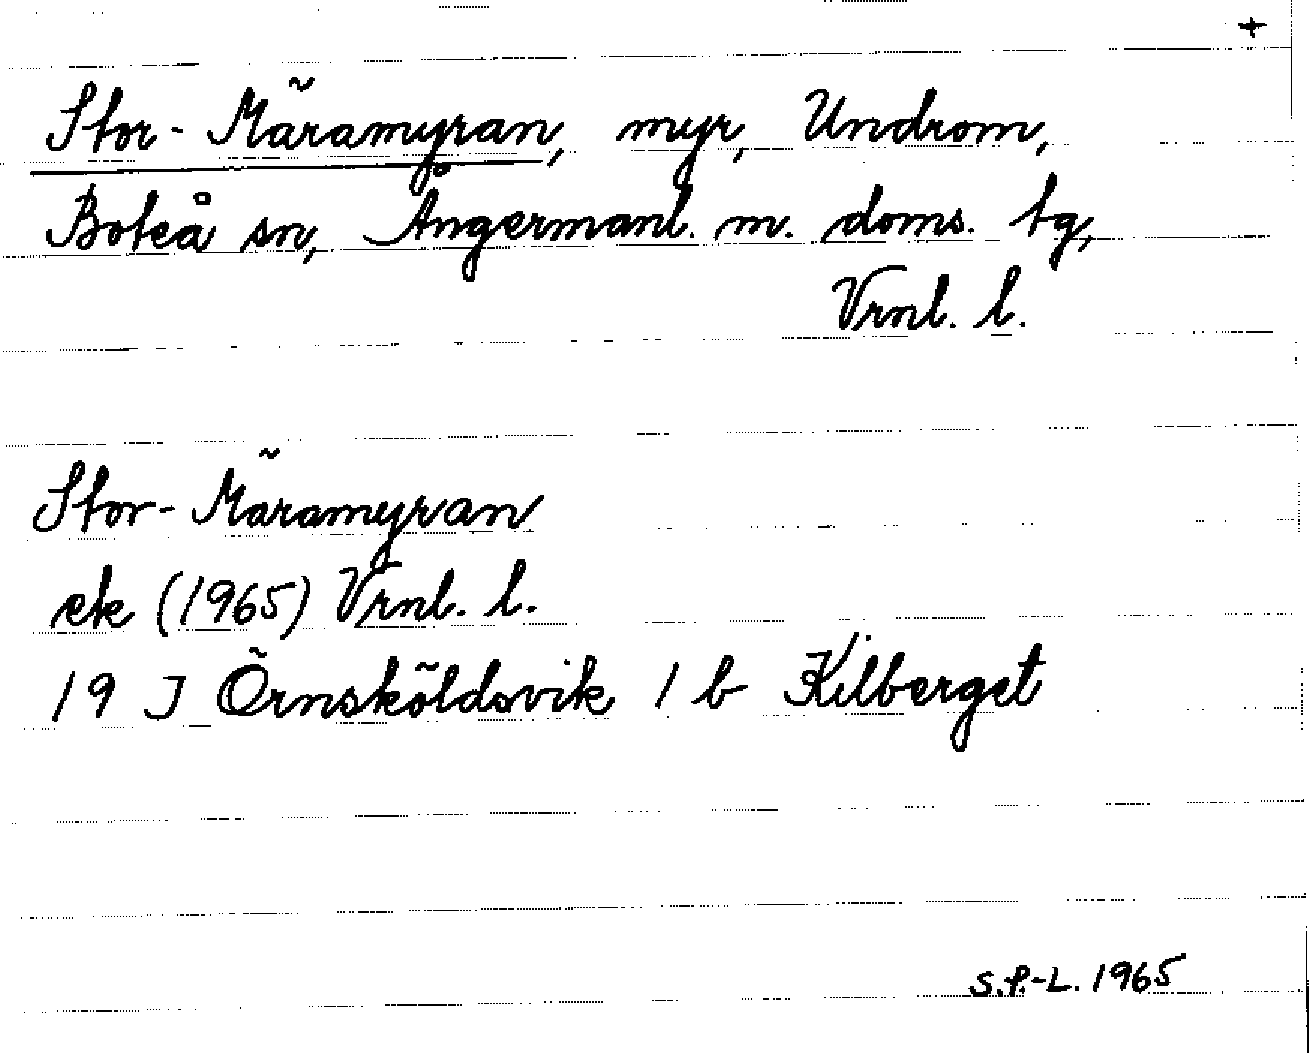 +
Stor-Märamyran, myr, Undrom,
Boteå sn, Ångermanl. m. doms. tg,
Vrnl. l.
Stor-Märamyran
ek (1965) Vrnl. l.
19 J Örnsköldsvik 1 b Kilberget
S.P.-L. 1965